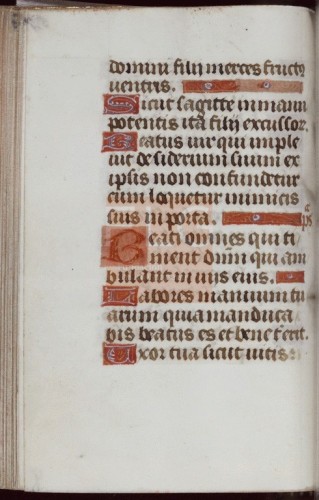 domini filij merces fructꝰ
uentris.
Sicut sagitte in manu
potentis ita filij excussor.
Beatus uir qui imple
uit desiderium suum ex
ipsis non confundetur
cum loquetur inimicis
suis in porta. ps
Beati omnes qui ti
ment dn̄m qui am
bulant in uijs eius.
Labores manuum tu
arum quia manduca
bis beatus es et bene t erit.
Uxor tua sicut uitis